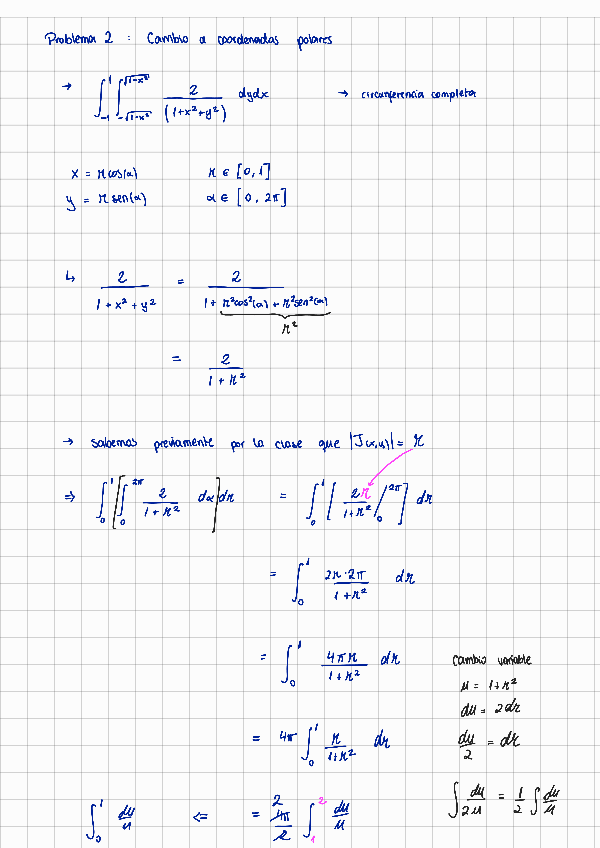 Problema 2 : Cambio a coordenadas polares
→ ∫_{-1}^{1} ∫_{-√(1-x²)}^{√(1-x²)} 2/(1+x²+y²) dydx → circunferencia completa
x = r cos(α) r ∈ [0,1]
y = r sen(α) α ∈ [0, 2π]
↳ 2/(1+x²+y²) = 2/(1+r²cos²(α)+r²sen²(α))
r²
= 2/(1+r²)
→ Sabemos previamente por la clase que |J(x,y)| = r
⇒ ∫_0^1 [∫_0^{2π} 2/(1+r²) dα] dr = ∫_0^1 [2r/(1+r²) /_0^{2π}] dr
= ∫_0^1 2r·2π/(1+r²) dr
= ∫_0^1 4πr/(1+r²) dr
= 4π ∫_0^1 r/(1+r²) dr
Cambio variable
u = 1+r²
du = 2dr
du/2 = dr
∫ du/2u = 1/2 ∫ du/u
∫_0^1 du/u ⇐ = 2 4π/2 ∫_1^2 du/u